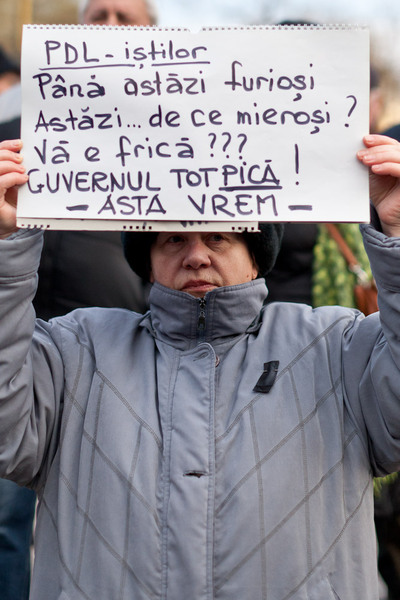 PDL-iştilor
Până astăzi furioşi
Astăzi... de ce mieroşi ?
Vă e frică ???
GUVERNUL TOT PICĂ !
- ASTA VREM -